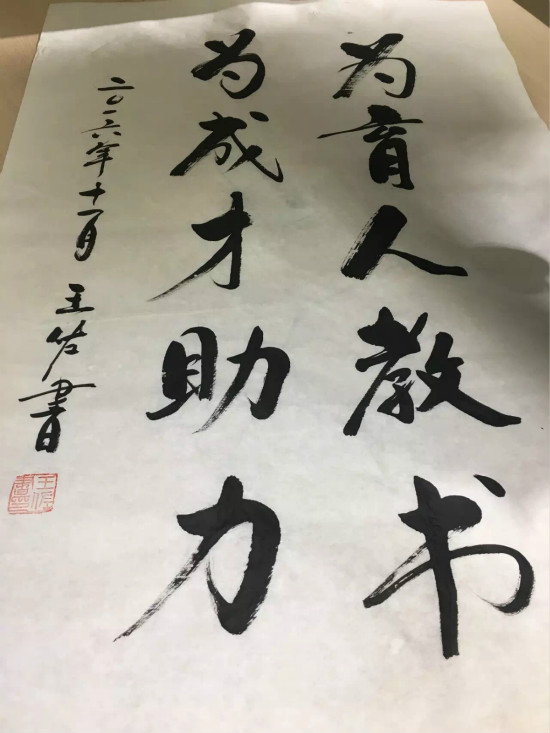 为育人教书
为成才助力
二〇一六年十一月 王佐書